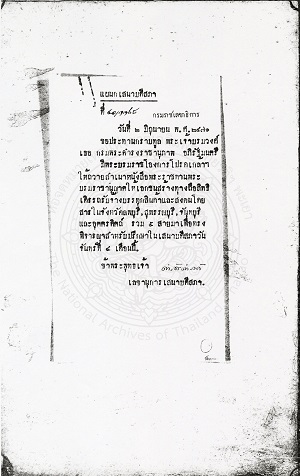 แผนกเสนาบดีสภา
ที่
กรมราชเลขาธิการ
วันที่ ๒ มิถุนายน พ.ศ. ๒๔๗๑
ขอประทานกราบทูล พระเจ้าบรมวงศ์
เธอ กรมพระดำรงราชานุภาพ อภิรัฐมนตรี
มีพระบรมราชโองการโปรดเกล้าฯ
ให้ถวายสำเนาหนังสือพระราชทานพระ
บรมราชานุญาตให้เอกชนสร้างทางถือสิทธิ
เดิรรถรับจ้างบรรทุกสินค้าและส่งคนโดย
สารในจังหวัดลพบุรี, สุพรรณบุรี, จันทบุรี
และอุตตรดิตถ์ รวม ๔ สายมาเพื่อทรง
พิจารณาสำหรับปรึกษาในเสนาบดีสภาวัน
จันทร์ที่ ๔ เดือนนี้.
ข้าพระพุทธเจ้า
เลขานุการเสนาบดีสภา.
National Archives of Thailand